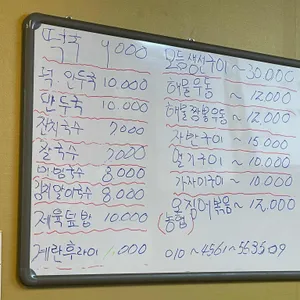 떡국 9,000
떡.만두국 10.000
만두국 10.000
잔치국수 7000
칼국수 7000
비빔국수 8.000
제육덮밥 10000
계란후라이 1,000
모둠생선구이 ~ 30.000
해물우동 ~ 12,000
해물짬뽕우동 ~ 12000
자반구이 ~ 15.000
굴비구이 ~ 10.000
가자미구이 ~ 10.000
오징어볶음 ~ 12.000
(농협)
010 ~ 4561 ~ 5635